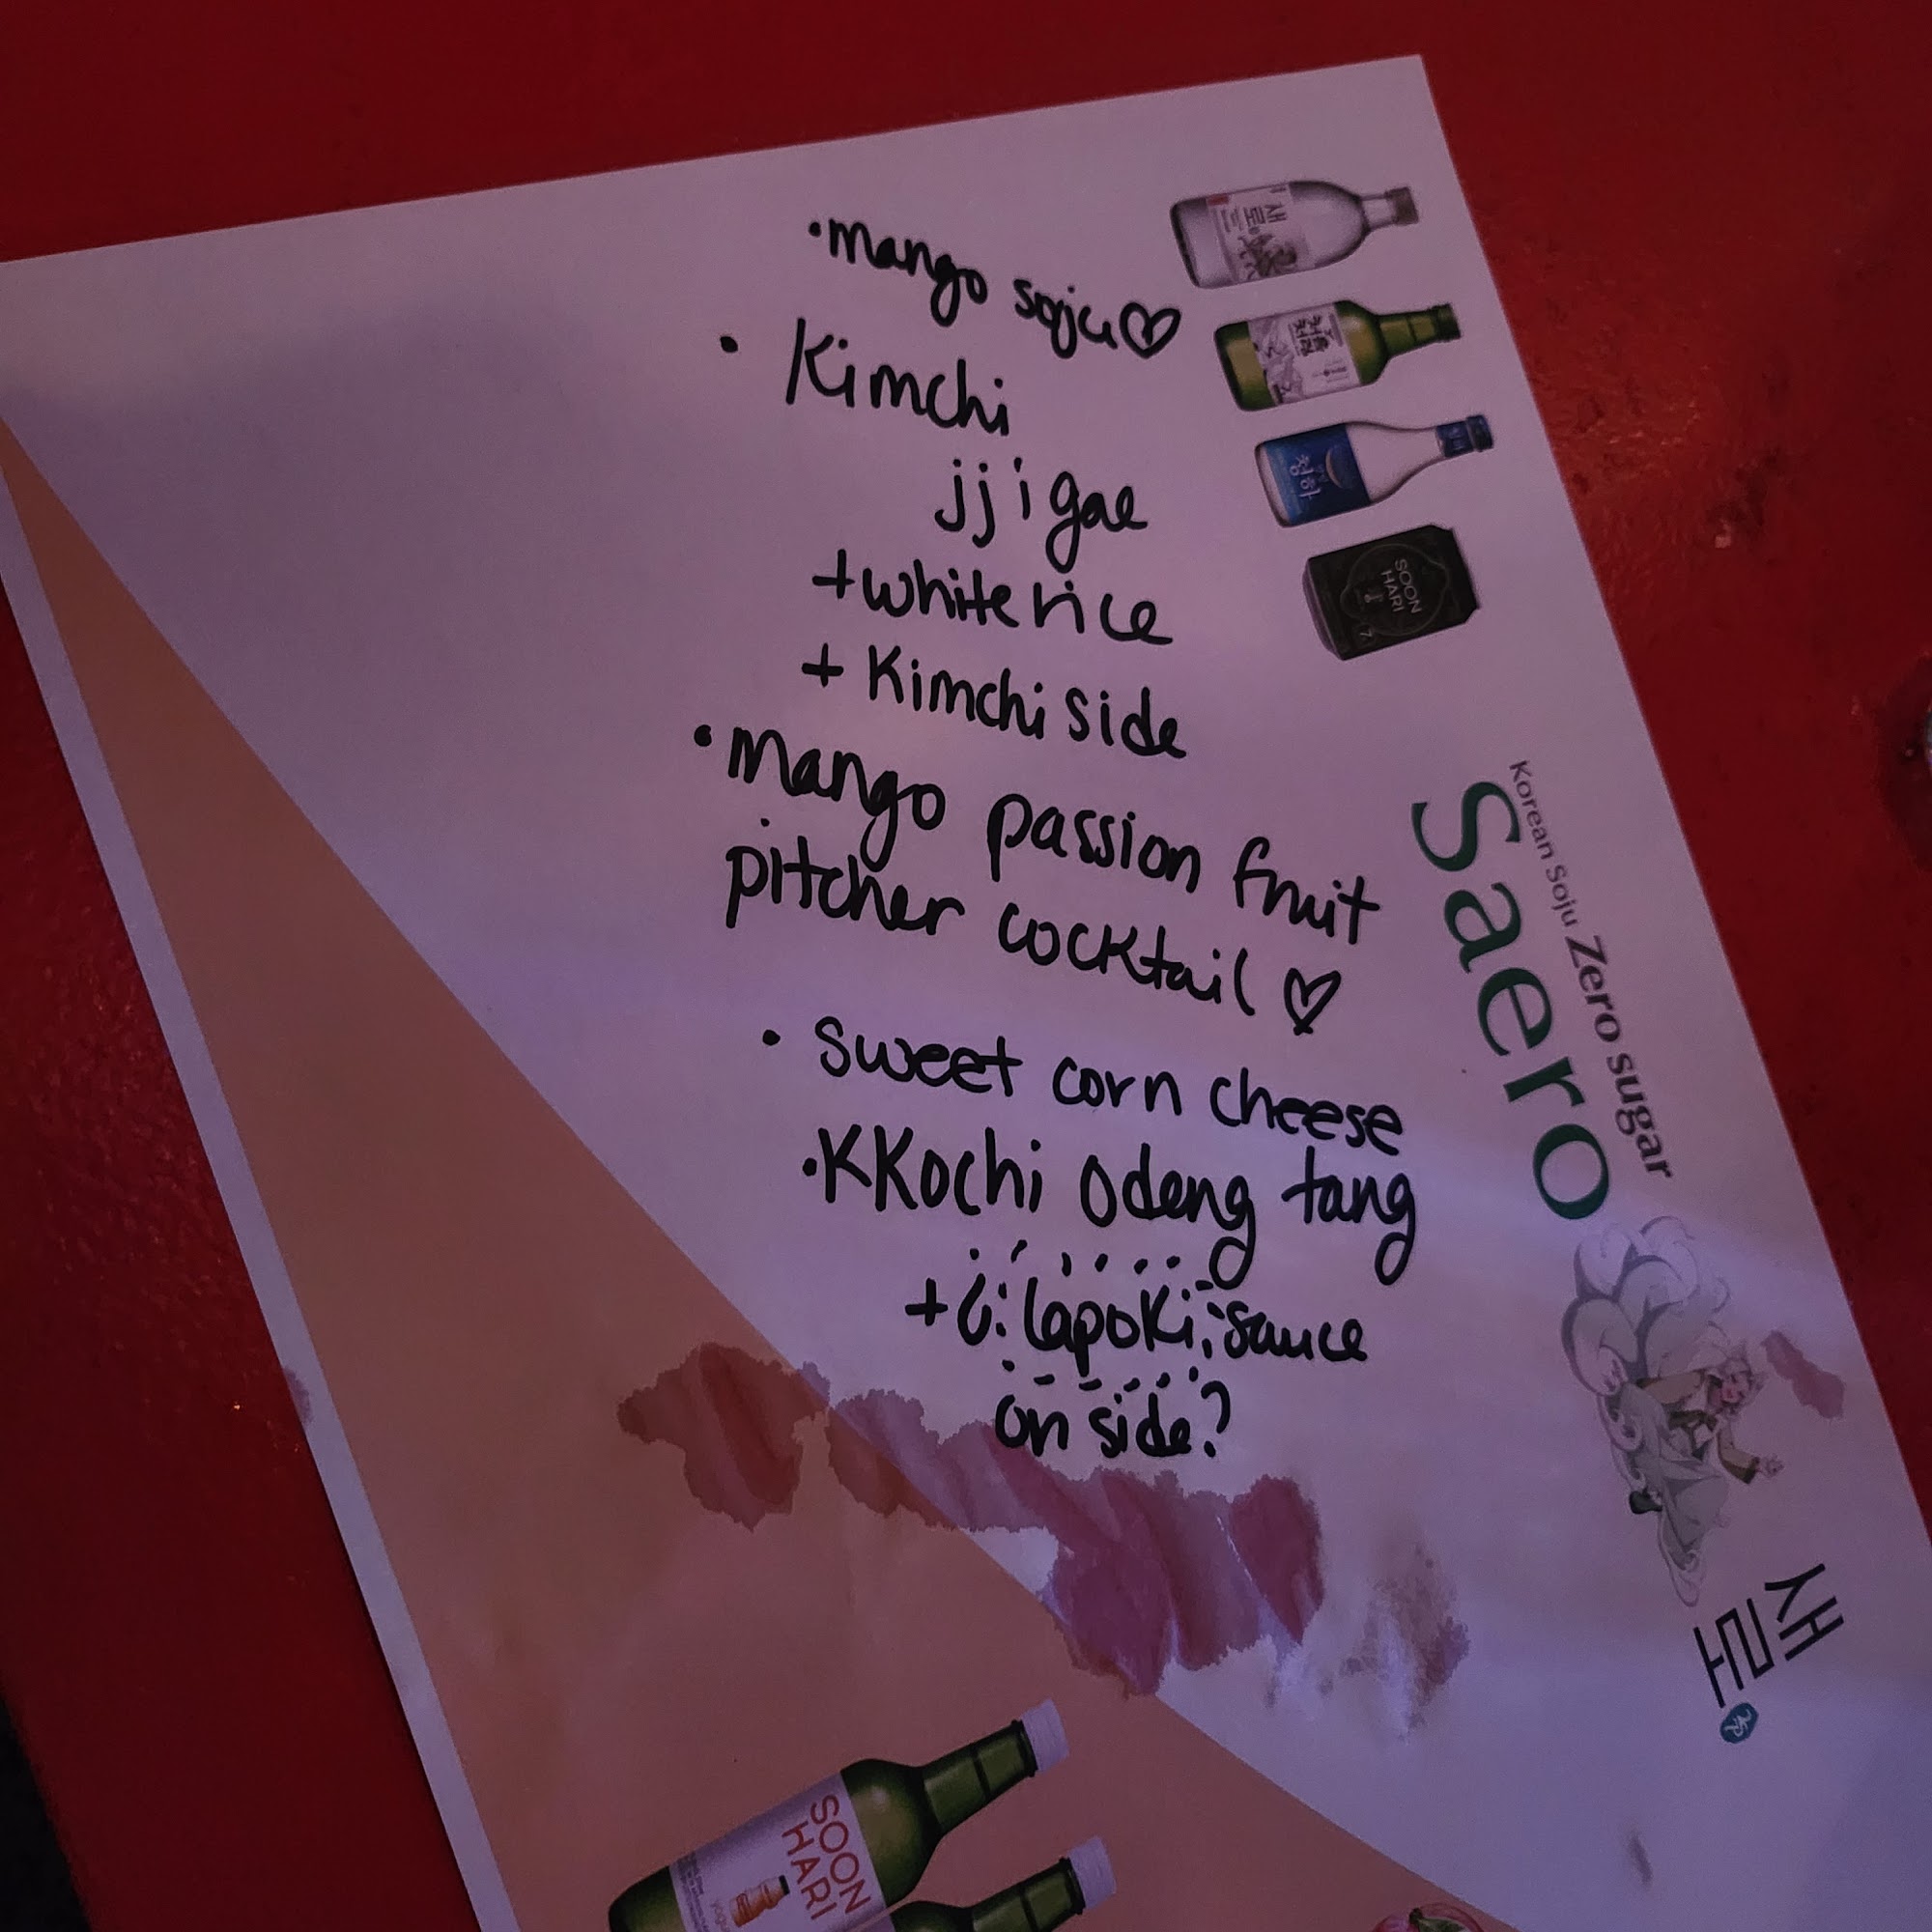 •mango soju♡
• Kimchi
jjigae
+white rice
+ Kimchi side
•mango passion fruit
pitcher cocktail ♡
• sweet corn cheese
•KKochi odeng tang
lapoki sauce
on side?
새로
처음처럼
청하
SOON
HARI
Korean Soju Zero sugar
Saero
새로
SOON
HARI